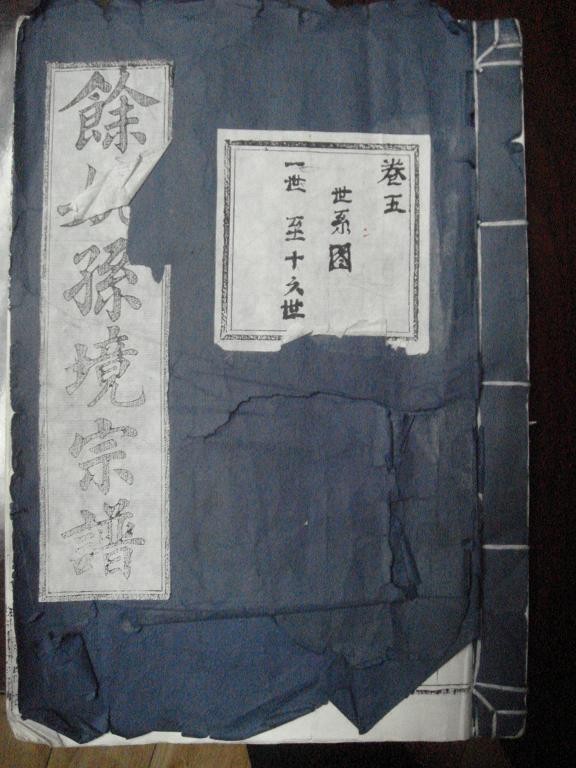 卷五
世系图
一世至十六世
餘孫境宗譜